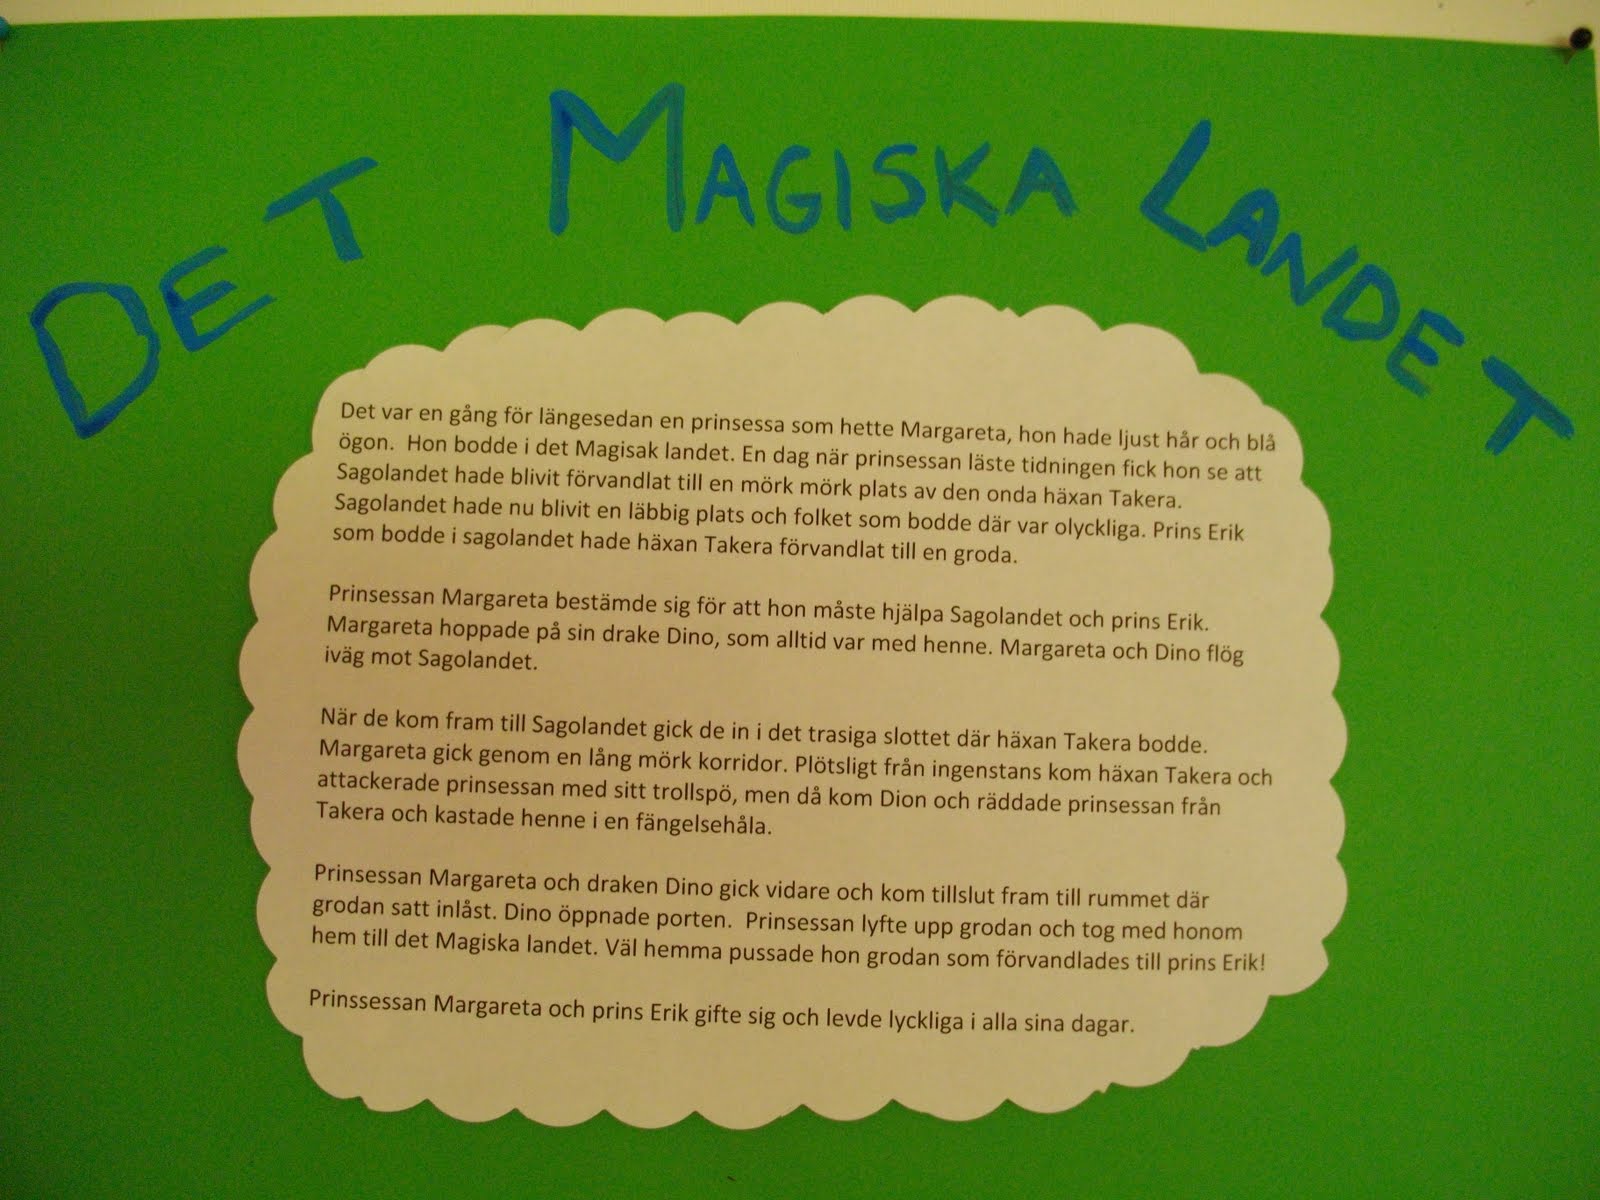 DET MAGISKA LANDET
Det var en gång för längesedan en prinsessa som hette Margareta, hon hade ljust hår och blå
ögon.  Hon bodde i det Magisak landet. En dag när prinsessan läste tidningen fick hon se att
Sagolandet hade blivit förvandlat till en mörk mörk plats av den onda häxan Takera.
Sagolandet hade nu blivit en läbbig plats och folket som bodde där var olyckliga. Prins Erik
som bodde i sagolandet hade häxan Takera förvandlat till en groda.
Prinsessan Margareta bestämde sig för att hon måste hjälpa Sagolandet och prins Erik.
Margareta hoppade på sin drake Dino, som alltid var med henne. Margareta och Dino flög
iväg mot Sagolandet.
När de kom fram till Sagolandet gick de in i det trasiga slottet där häxan Takera bodde.
Margareta gick genom en lång mörk korridor. Plötsligt från ingenstans kom häxan Takera och
attackerade prinsessan med sitt trollspö, men då kom Dion och räddade prinsessan från
Takera och kastade henne i en fängelsehåla.
Prinsessan Margareta och draken Dino gick vidare och kom tillslut fram till rummet där
grodan satt inlåst. Dino öppnade porten.  Prinsessan lyfte upp grodan och tog med honom
hem till det Magiska landet. Väl hemma pussade hon grodan som förvandlades till prins Erik!
Prinssessan Margareta och prins Erik gifte sig och levde lyckliga i alla sina dagar.